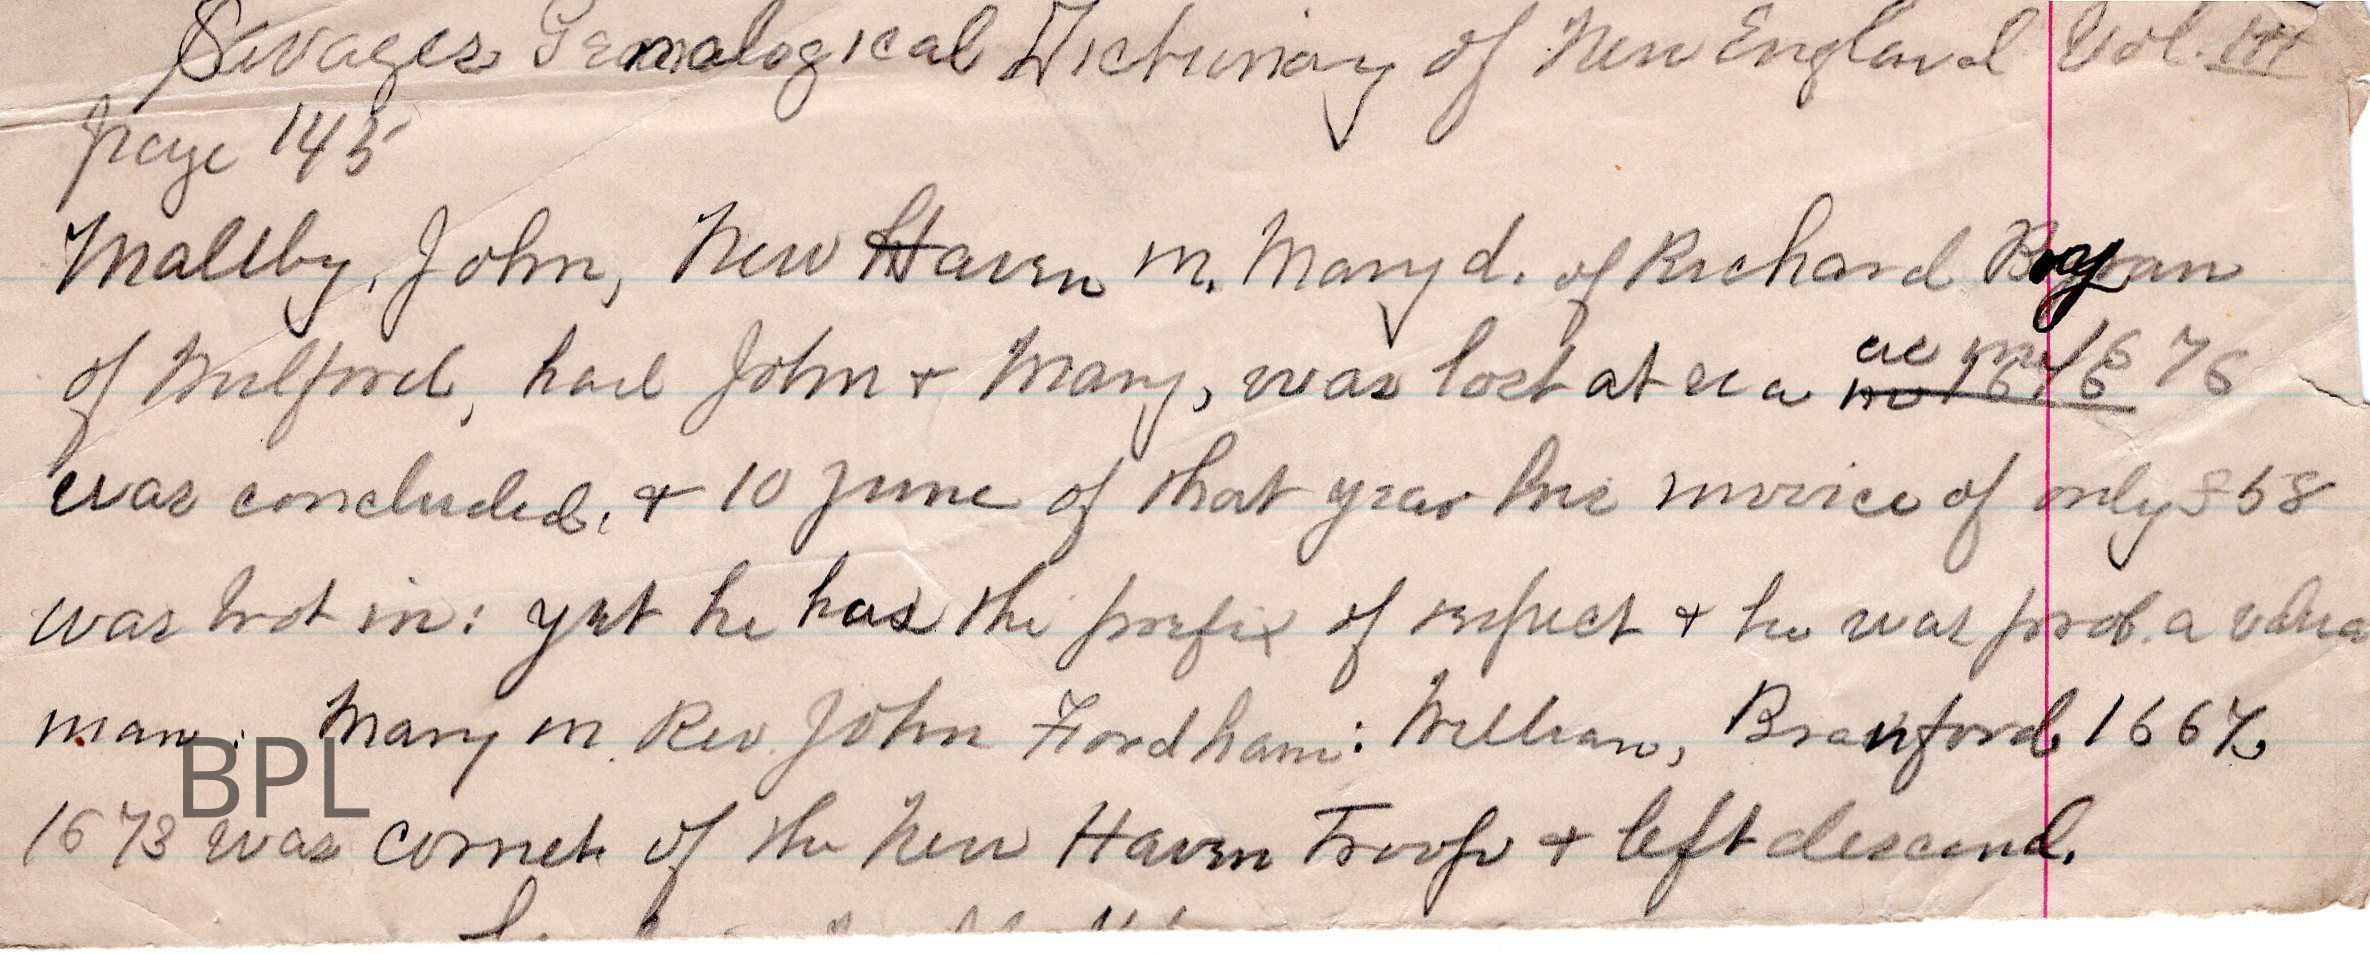 Savages Genealogical Dictionary of New England Vol. III
page 145
Maltby, John, New Haven m. Mary d. of Richard Bryan
of Milford, had John + Mary, was lost at sea as in 1676
was concluded, + 10 June of that year his invoice of only £58
was brot in: yet he has the prefix of respect + he was prob. a valua
man: Mary m. Rev. John Fordham: William, Branford, 1667,
1673 was cornet of the New Haven Troop + left descend.
BPL